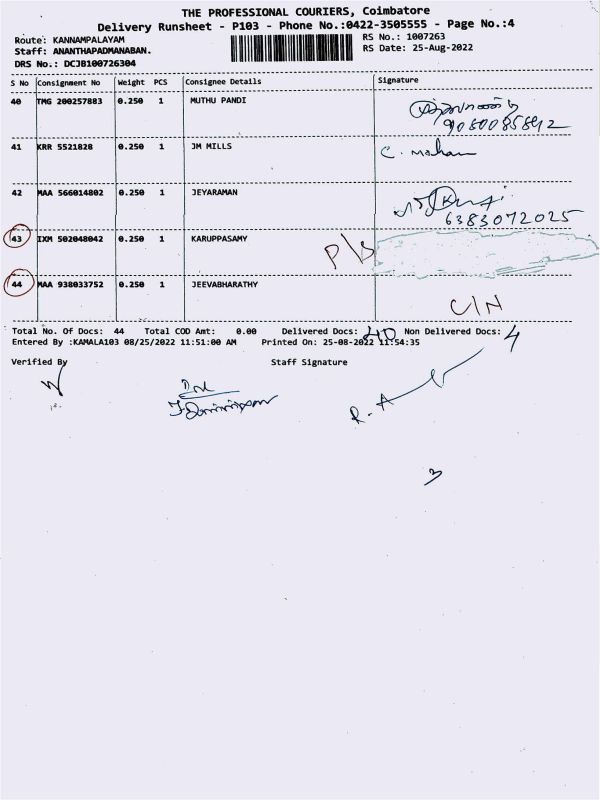 THE PROFESSIONAL COURIERS, Coimbatore
Delivery Runsheet - P103 - Phone No.:0422-3505555 - Page No.:4
Route: KANNAMPALAYAM RS No.: 1007263
Staff: ANANTHAPADMANABAN. RS Date: 25-Aug-2022
DRS No.: DCJB100726304
S No Consignment No Weight PCS Consignee Details Signature
40 TMG 200257883 0.250 1 MUTHU PANDI
9080085892
41 KRR 5521828 0.250 1 JM MILLS C. mohan
42 MAA 566014802 0.250 1 JEYARAMAN
6383072025
43 IXM 502048042 0.250 1 KARUPPASAMY P/S
44 MAA 938033752 0.250 1 JEEVABHARATHY
C/N
Total No. Of Docs: 44 Total COD Amt: 0.00 Delivered Docs: 40 Non Delivered Docs: 4
Entered By :KAMALA103 08/25/2022 11:51:00 AM Printed On: 25-08-2022 11:54:35
Verified By Staff Signature
R. A
3